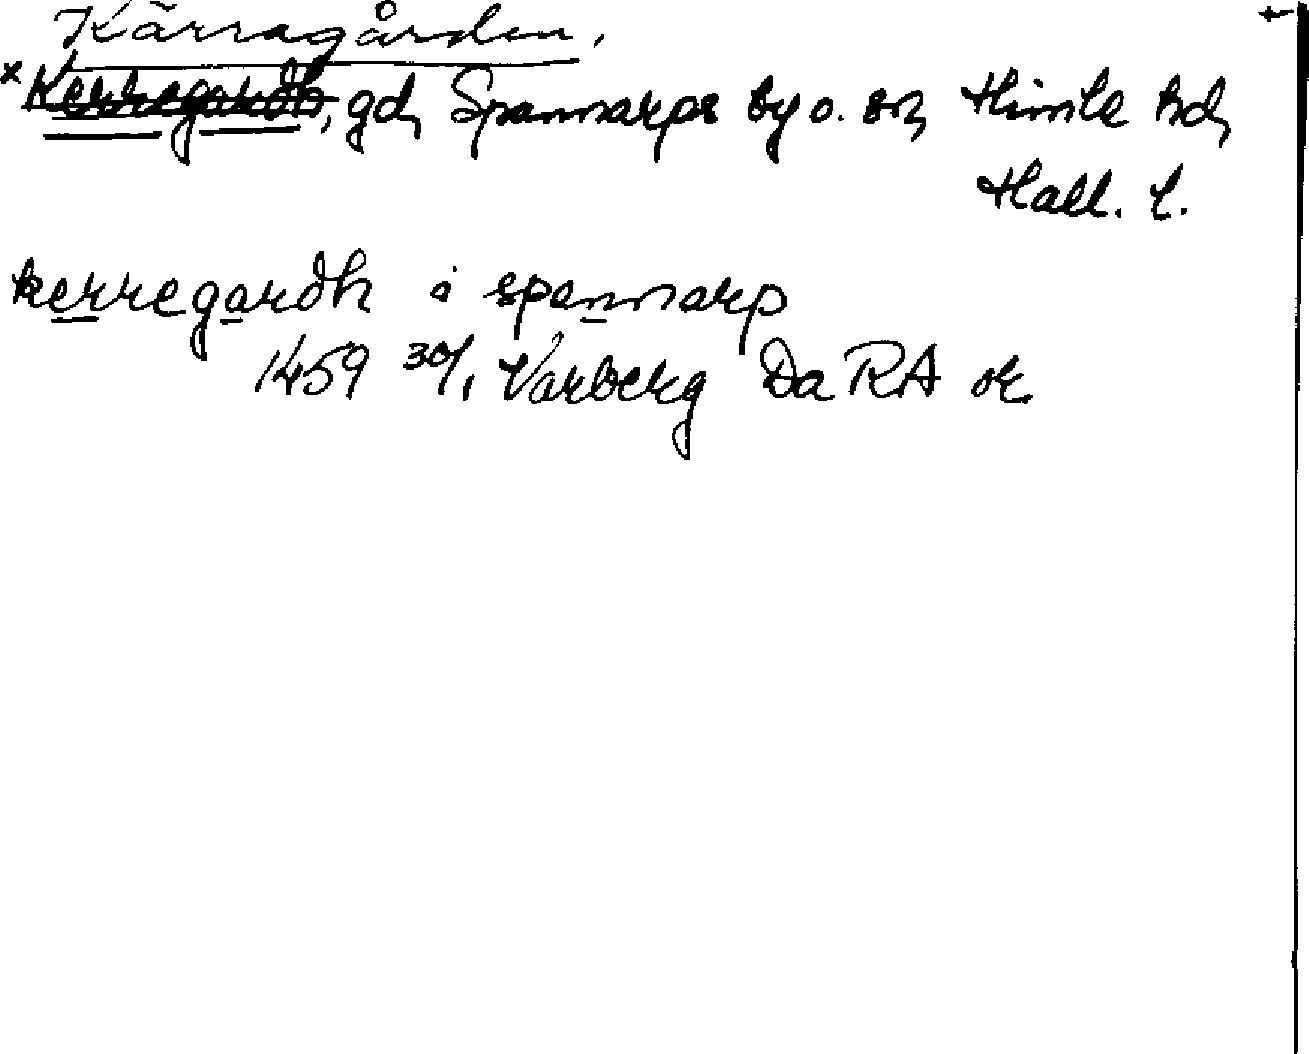 Kärragården,
×Kerregardh, gd, Spannarps by o. sn, Himle hd,
Hall. l.
kerregardh i spannarp
1459 30/1 Varberg Da RA or.